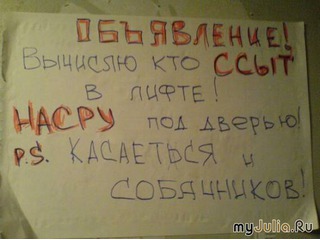 ОБЪЯВЛЕНИЕ!
ВЫЧИСЛЮ КТО ССЫТ
В ЛИФТЕ!
НАСРУ ПОД ДВЕРЬЮ!
P.S. КАСАЕТЬСЯ И
СОБАЧНИКОВ!
myJulia.Ru